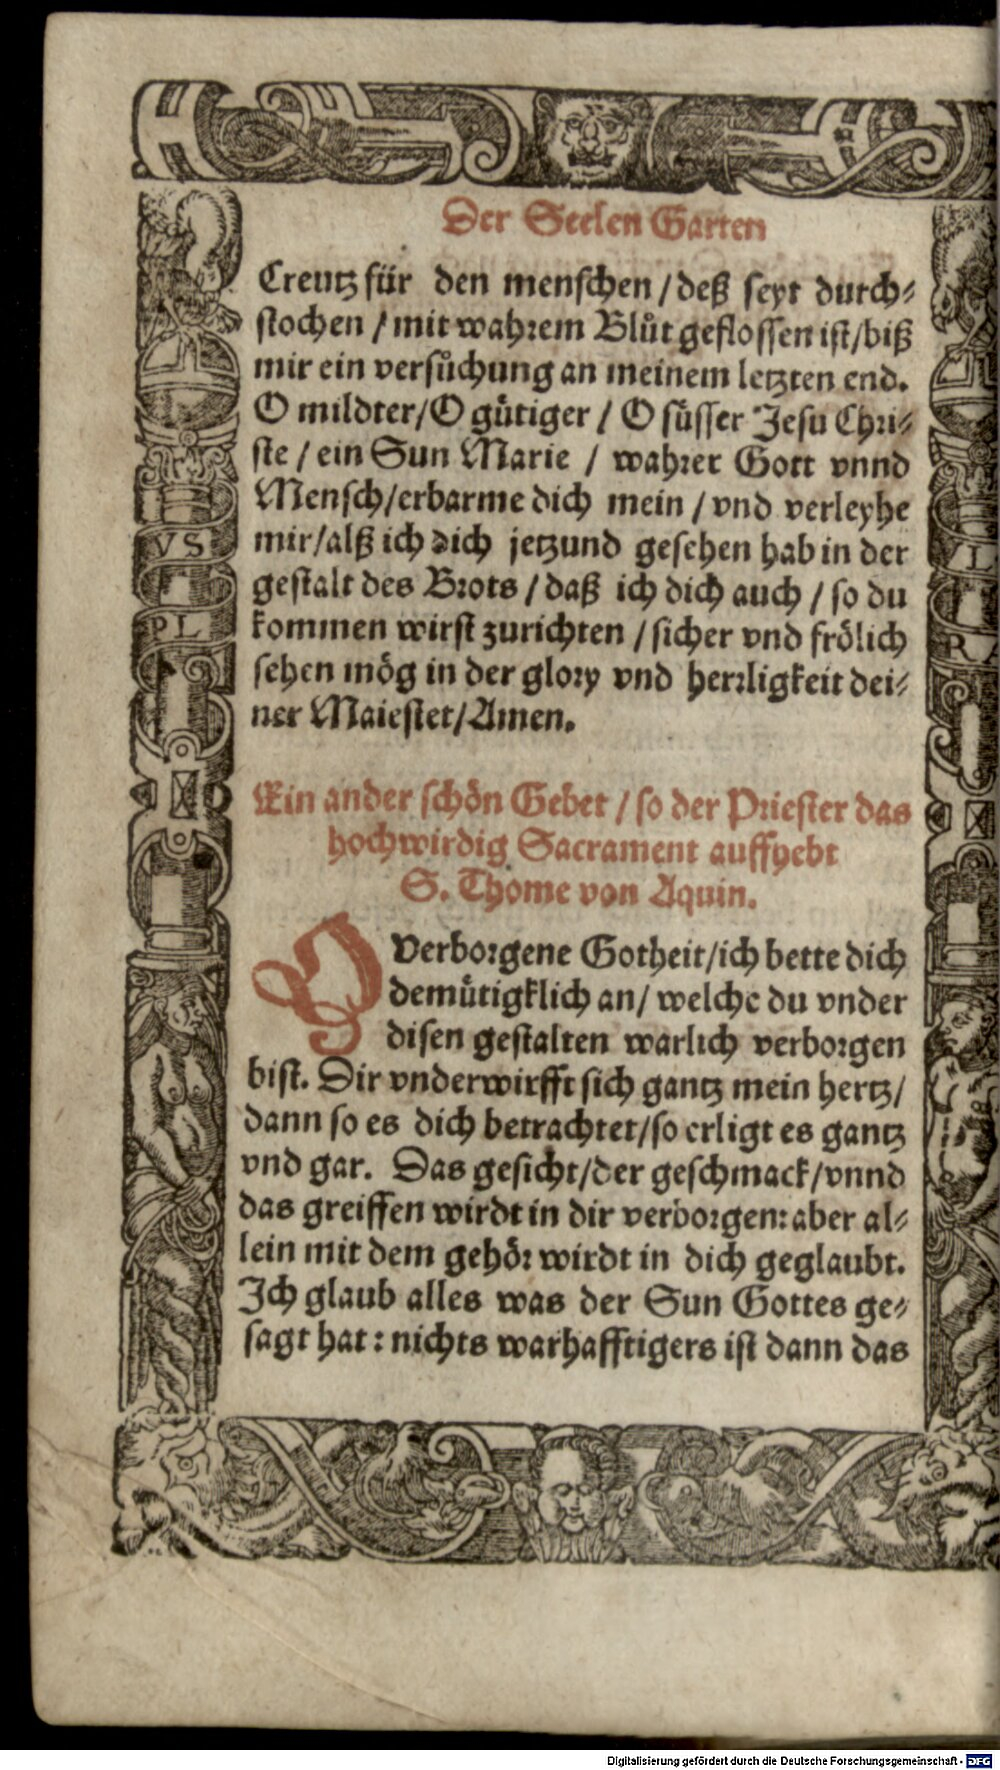 Der Seelen Garten
Creutz für den menschen / deß seyt durch⸗
stochen / mit wahrem Blůt geflossen ist / biß
mir ein versůchung an meinem letzten end.
O mildter / O gütiger / O süsser Jesu Chri⸗
ste / ein Sun Marie / wahrer Gott vnnd
Mensch / erbarme dich mein / vnd verleyhe
mir / alß ich dich jetzund gesehen hab in der
gestalt des Brots / daß ich dich auch / so du
kommen wirst zurichten / sicher vnd frölich
sehen mög in der glory vnd herrligkeit dei⸗
ner Maiestet / Amen.
Ein ander schön Gebet / so der Priester das
hochwirdig Sacrament auffhebt
S. Thome von Aquin.
O Verborgene Gotheit / ich bette dich
demütigklich an / welche du vnder
disen gestalten warlich verborgen
bist. Dir vnderwirfft sich gantz mein hertz /
dann so es dich betrachtet / so erligt es gantz
vnd gar. Das gesicht / der geschmack / vnnd
das greiffen wirdt in dir verborgen: aber al⸗
lein mit dem gehör wirdt in dich geglaubt.
Ich glaub alles was der Sun Gottes ge⸗
sagt hat: nichts warhafftigers ist dann das
VS
PL
VL
R
Digitalisierung gefördert durch die Deutsche Forschungsgemeinschaft - DFG